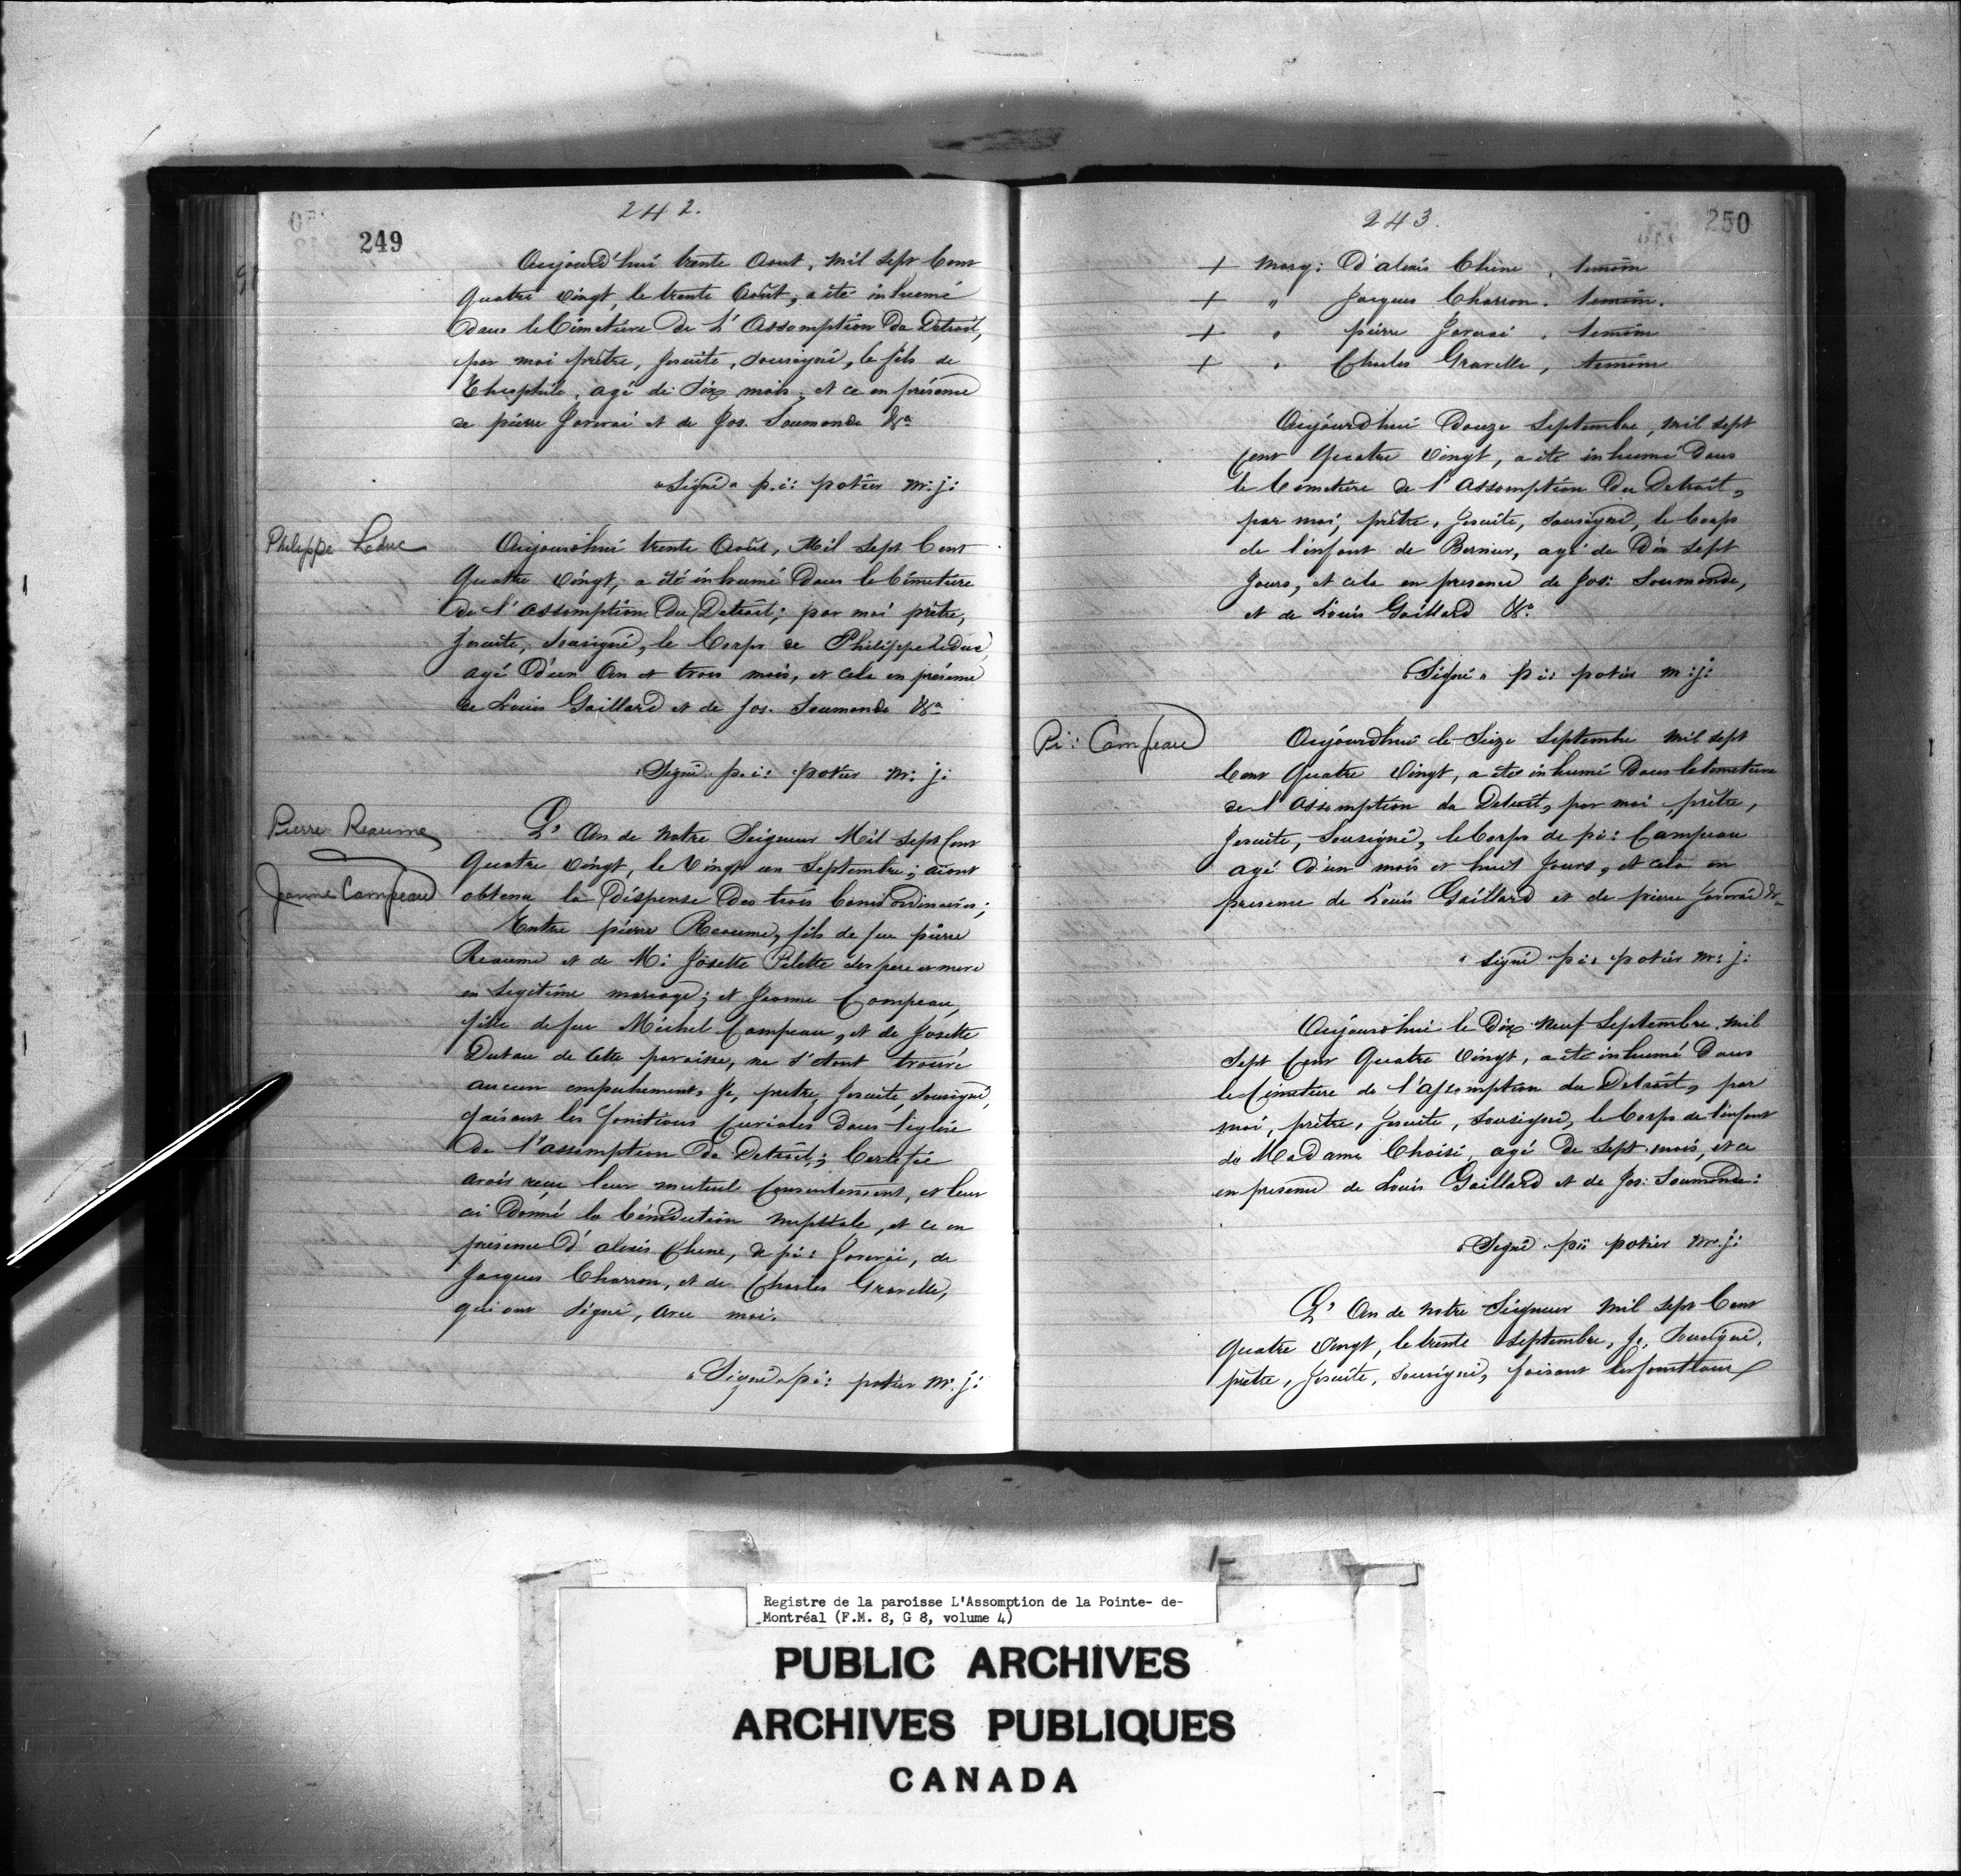 242.
249
Aujourd'hui trente Aout, Mil Sept Cent
Quatre vingt, le trente Août, a été inhumé
dans le Cimetiere de L'Assomption du Detroit,
par moi prêtre, Jesuite, Sousigné, le fils de
Theophile, agé de Six mois, et ce en présence
de pierre Jarvrai et de Jos. Soumonde &a
"Signé" p.i: potier m:j:
Philippe Leduc
Aujourd'hui trente Août, Mil Sept Cent
Quatre vingt, a été inhumé Dans le Cimetiere
de l'Assomption Du Detroit; par moi prêtre,
Jesuite, Sousigné, le Corps de Philippe Leduc,
agé D'un An et trois mois, et cela en présence
de Louis Gaillard et de Jos. Soumonde &a
"Signé" p.i: potier m: j:
Pierre Reaume
Jeanne Campeau
L'An de Notre Seigneur Mil Sept Cent
Quatre vingt, le Vingt un Septembre; aiant
obtenu la Dispense Des trois bans ordinaires;
Entre pierre Reaume, fils de feu pierre
Reaume et de M: Josette Pilette ses pere et mere
en legitime mariage; et Jeanne Campeau,
fille de feu Michel Campeau, et de Josette
Dutau de Cette paroisse, ne s'etant trouvé
aucun empechement, Je, prêtre, Jesuite, Sousigné,
faisant les fonctions Curiales dans l'eglise
De l'assomption du Detroit; Certifie
avoir reçu leur mutuel Consentement, et leur
ai Donné la bénédiction nuptiale, et ce en
présence D'alexis Chene, de pi: Jarvrai, de
Jacques Charron, et de Charles Gravelle,
qui ont Signé, avec moi.
"Signé" pi: potier m: j:
243.
250
+ Marq: D'alexis Chêne, temoin
+ " Jacques Charron. temoin.
+ " pierre Jarvrai, temoin
+ " Charles Gravelle, temoin
Aujourd'hui Douze Septembre, Mil Sept
Cent Quatre vingt, a été inhumé Dans
le Cimetiere de l'Assomption Du Detroit,
par moi, prêtre, Jesuite, Sousigné, le Corps
de l'enfant de Bernier, agé de Dix Sept
Jours, et cela en presence de Jos: Soumonde,
et de Louis Gaillard &a.
"Signé" pi: potier m:j:
Pi: Campeau
Aujourd'hui le Seize Septembre Mil Sept
Cent Quatre Vingt, a été inhumé Dans le Cimetiere
de l'Assomption du Detroit, par moi prêtre,
Jesuite, Sousigné, le Corps de pi: Campeau
agé D'un mois et huit Jours, et cela en
presence de Louis Gaillard et de pierre Jarvrai &a
"Signé" pi: potier m: j:
Aujourd'hui le Dix Neuf Septembre Mil
Sept Cent Quatre Vingt, a été inhumé Dans
le Cimetiere de l'assomption du Detroit, par
moi, prêtre, Jesuite, Sousigné, le Corps de l'enfant
de Madame Choisi, agé De Sept mois, et ce
en presence de Louis Gaillard et de Jos: Soumonde:
"Signé" pi: potier m.j:
L'An de Notre Seigneur Mil Sept Cent
Quatre vingt, le trente Septembre, Je, Sousigné,
prêtre, Jesuite, Sousigné, faisant les fonctions
Registre de la paroisse L'Assomption de la Pointe- de-
Montréal (F.M. 8, G 8, volume 4)
PUBLIC ARCHIVES
ARCHIVES PUBLIQUES
CANADA